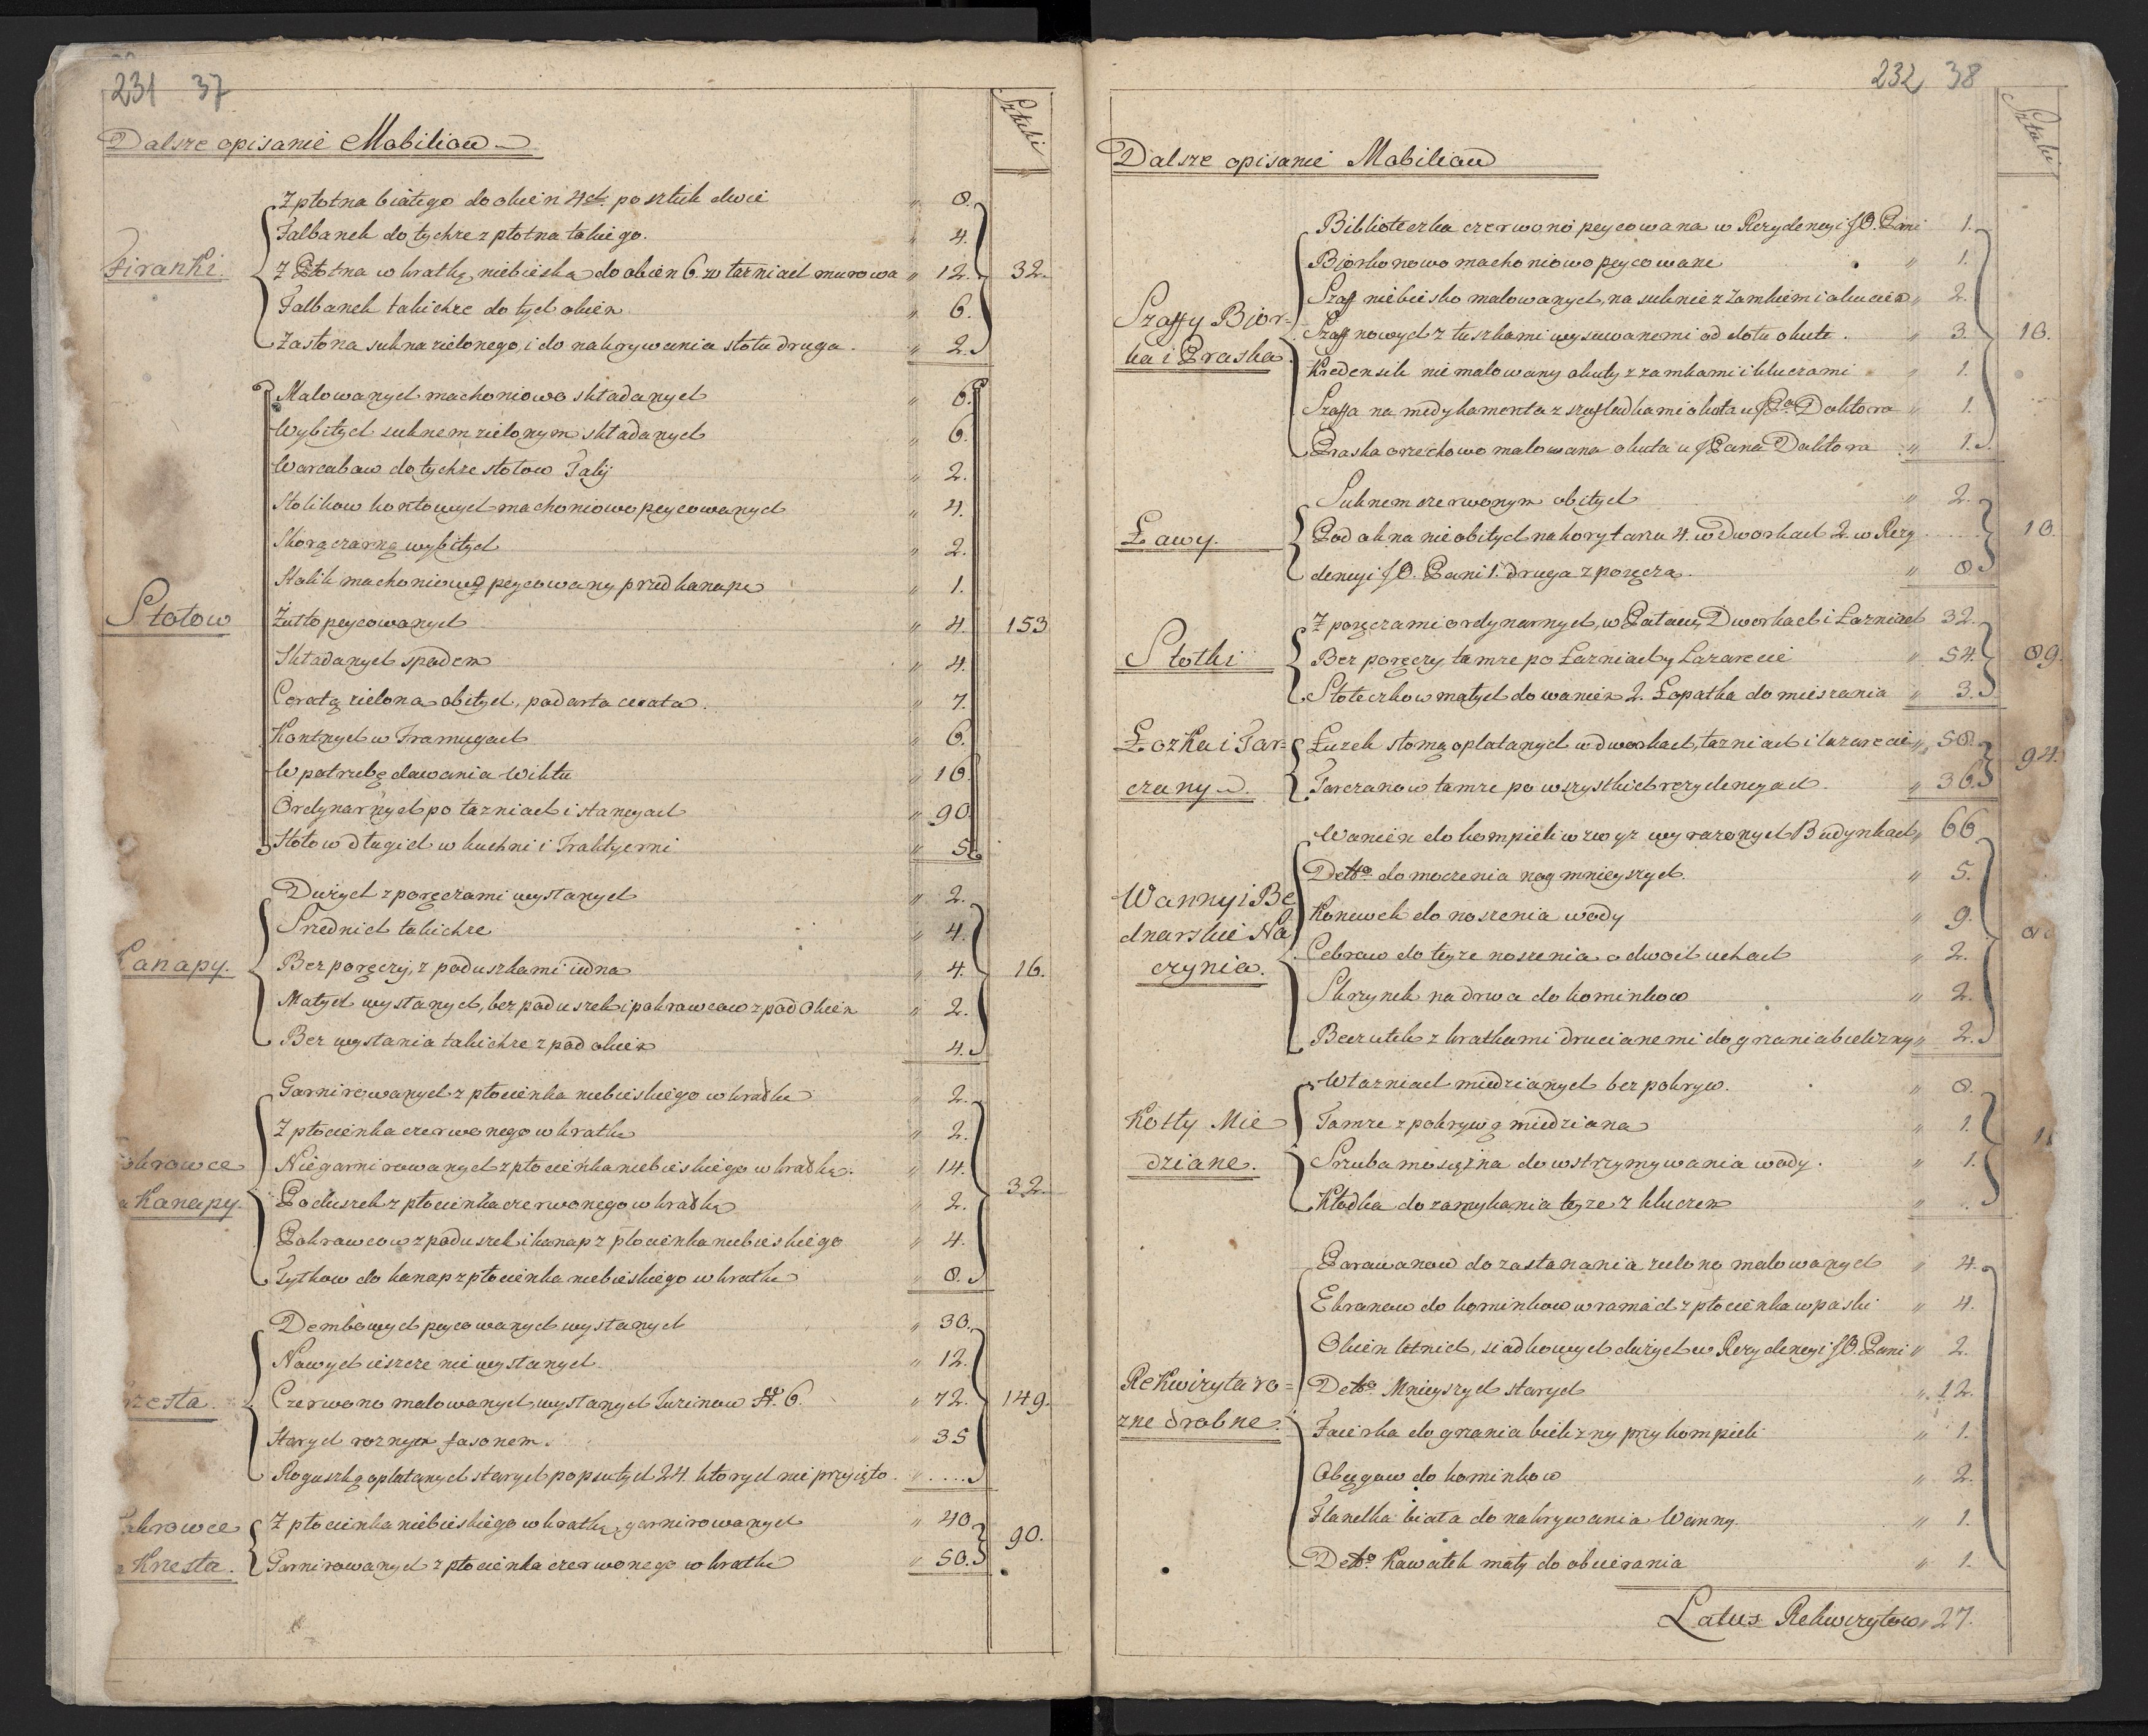 231 37
Sztuki
Dalsze opisanie Mobiliow
Firanki.
Z płotna białego do okien 4ch po sztuk dwie " 8.
Falbanek do tychze z płotna takiego. " 4.
Z Płotna w kratkę niebieską do okien 6. w łazniach murowa " 12. 32.
Falbanek takichze do tych okien " 6.
Zasłona sukna zielonego, i do nakrywania stołu druga. " 2.
Stołow
Malowanych machoniowo składanych " 6.
Wybitych suknem zielonym składanych " 6.
Warcabow do tychze stołow Talij " 2.
Stolikow kortowych machoniowo peycowanych " 4.
Skorą czarną wybitych " 2.
Stolik machoniowo peycowany przed kanapę " 1.
Żułto peycowanych " 4. 153
Składanych spodem " 4.
Ceratą zieloną obitych, podarta cerata. " 7.
Kontnych w Framugach " 6.
W potrzebę dawania wiktu " 16.
Ordynarnych po łazniach i stancyach " 90.
Stołow długich w kuchni i Traktyerni " 5.
Kanapy.
Dużych z poręczami wysłanych " 2.
Srednich takichze " 4.
Bez poręczy, z poduszkami iedna " 4. 16.
Małych wysłanych, bez poduszek i pokrowcow z pod Okien " 2.
Bez wysłania takichze z pod okien 4.
okrowce
a Kanapy.
Garnirowanych z płocienka niebieskiego w kratkę " 2.
Z płocienka czerwonego w kratkę " 2.
Niegarnirowanych z płocienka niebieskiego w kratkę. " 14.
Poduszek z płocienka czerwonego w kratkę " 2. 32.
Pokrowcow z poduszek i kanap z płocienka niebieskiego " 4.
Tytkow do kanap z płocienka niebieskiego w kratkę " 8.
rzesła.
Dembowych peycowanych wysłanych " 30.
Nowych ieszcze nie wysłanych " 12.
Czerwono malowanych, wysłanych Tuzinow No 6. " 72. 149.
Starych roznym fasonem. " 35
Roguszką oplatanych starych popsutych 24. ktorych nie przyięto. " .....
okrowce
a Krzesła.
Z płocienka niebieskiego w kratkę, garnirowanych " 40.
Garnirowanych z płocienka czerwonego w kratkę " 50. 90.
232 38
Sztuki
Dalsze opisanie Mobiliow
Szaffy Bior-
ka i Praska.
Biblioteczka czerwono peycowana w Rezydencyi JO. Pani 1.
Biorko nowo machoniowo peycowane " 1.
Szaff niebiesko malowanych, na suknie z Zamkiem i okuciem " 2.
Szaff nowych z tuszkami wysuwanemi od dołu okute. " 3. 10.
Kredensik nie malowany okuty z zamkami i kluczami " 1.
Szaffa na medykamenta z szufladkami okuta u JPa Doktora " 1.
Praska orzechowo malowana okuta u JPana Doktora " 1.
Ławy.
Suknem czerwonym obitych " 2.
Pod okna nie obitych na korytarzu 4. w Dworkach 2. w Rezy 10.
dencyi JO. Pani 1. druga z poręczą. " 8.
Stołki
Z poręczami ordynarnych, w Pałacu, Dworkach i Łazniach 32.
Bez poręczy tamze po Łazniach y Lazarecie " 54. 89.
Stołeczkow małych do wanien 2. Łopatka do mieszania " 3.
Łozka i Tar=
czany.
Łuzek słomą oplatanych w dworkach, łazniach i lazarecie " 58.
Tarczanow tamze po wszystkich rezydencyach. " 36. 94.
Wanny i Be
dnarskie Na
czynia.
Wanien do kompieli w zwyz wyrazonych Budynkach " 66
Detto do moczenia nog mnieyszych. " 5.
Konewek do noszenia wody 9.
Cebrow do teyze noszenia o dwoch uchach " 2.
Skrzynek na drwa do kominkow " 2.
Beczułek z kratkami drucianemi do grzania bielizny " 2.
Kotły Mie
dziane.
W łazniach miedzianych bez pokryw. " 8.
Tamze z pokrywą miedzianą " 1.
Szruba mosiężna do wstrzymywania wody. " 1.
Kłodka do zamykania teyze z kluczem "
Rekwizyta ro=
zne drobne.
Parawanow do zasłaniania zielono malowanych " 4.
Ekranow do kominkow w ramach z płocienka w paski " 4.
Okien letnich, siadkowych dużych w Rezydencyi JO. Pani " 2.
Detto Mnieyszych starych " 12.
Faierka do grzania bielizny przy kompieli " 1.
Obcęgow do kominkow " 2.
Flanelka biała do nakrywania Wanny. " 1.
Detto Kawałek mały do obcierania " 1.
Latus Rekwizytow " 27.